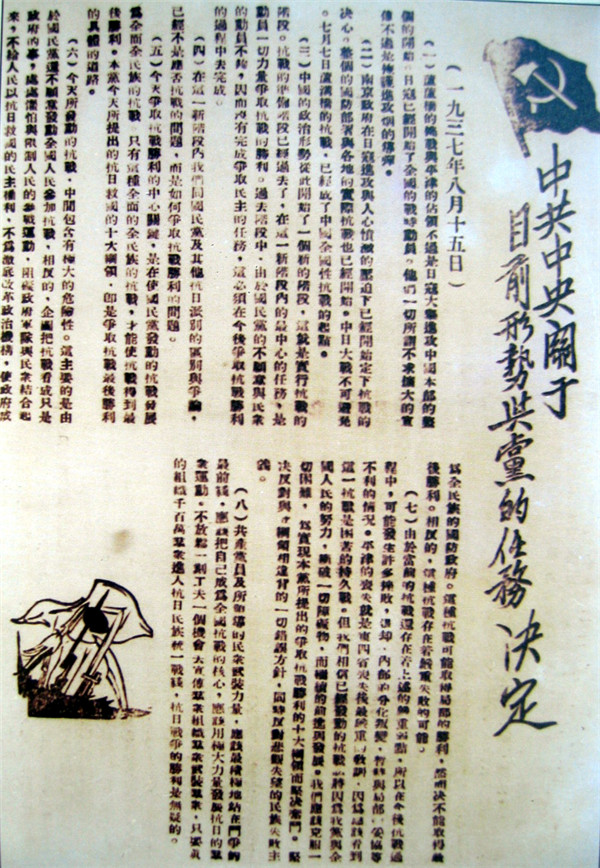 中共中央關于
目前形勢與黨的任務 決定
（一九三七年八月十五日）
（一）蘆溝橋的挑戰與平津的佔領不過是日寇大舉進攻中國本部的整
個的開始。日寇已經開始了全國的戰時動員。他們一切所謂不求擴大的宣
傳不過是掩護進攻的煙幕彈。
（二）南京政府在日寇進攻與人心憤激的壓迫下已經開始定下抗戰的
決心。整個的國防部署與各地的實際抗戰也已經開始。中日大戰不可避免
。七月七日蘆溝橋的抗戰，已經成了中國全國性抗戰的起點。
（三）中國的政治形勢從此開始了一個新的階段，這就是實行抗戰的
階段。抗戰的準備階段已經過去了，在這一新階段內的最中心的任務，是
動員一切力量爭取抗戰的勝利。過去階段中，由於國民黨的不願意與民衆
的動員不夠，因而沒有完成爭取民主的任務，這必須在今後爭取抗戰勝利
的過程中去完成。
（四）在這一新階段內我們同國民黨及其他抗日派別的區別與爭論，
已經不是應否抗戰的問題，而是如何爭取抗戰勝利的問題。
（五）今天爭取抗戰勝利的中心關鍵，是在使國民黨發動的抗戰發展
爲全面全民族的抗戰。只有這種全面的全民族的抗戰，才能使抗戰得到最
後勝利。本黨今天所提出的抗日救國的十大綱領，即是爭取抗戰最後勝利
的具體的道路。
（六）今天所發動的抗戰，中間包含有極大的危險性。這主要的是由
於國民黨還不願意發動全國人民參加抗戰，相反的，企圖把抗戰看成只是
政府的事，處處懼怕與限制人民的參戰運動，阻礙政府軍隊與民衆結合起
來，不給人民以抗日救國的民主權利，不爲澈底改革政治機構，使政府成
爲全民族的國防政府。這種抗戰可能取得局部的勝利，然而決不能取得最
後勝利。相反的，這種抗戰存在着嚴重失敗的可能。
（七）由於當前的抗戰還存在着上述的嚴重弱點，所以在今後抗戰過
程中，可能發生許多挫敗，退却，內部的分化叛變，暫時與局部的妥協等
不利的情況。平津的喪失就是東四省喪失後最嚴重的教訓。因爲應該看到
這一抗戰是困苦的持久戰。但我們相信已經發動的抗戰，必將因爲我黨與全
國人民的努力，衝破一切障礙物，而繼續的前進與發展。我們應該克服一
切困難，爲實現本黨所提出的爭取抗戰勝利的十大綱領而堅決奮鬥。堅
決反對與此綱領相違背的一切錯誤方針，同時反對悲觀失望的民族失敗主
義。
（八）共產黨員及所領導的民衆武裝力量，應該最積極地站在鬥爭的
最前綫，應該把自己成爲全國抗戰的核心，應該用極大力量發展抗日的羣
衆運動。不放鬆一刻工夫一個機會去宣傳羣衆組織羣衆武裝羣衆，只要真
的組織千百萬羣衆進入抗日民族統一戰綫，抗日戰爭的勝利是無疑的。